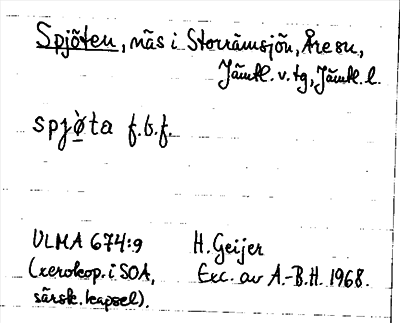 Spjöten, näs i Storrämsjön, Åre sn,
Jämtl. v. tg, Jämtl. l.
spjø̀ta f.b.f.
ULMA 674:9 H. Geijer
(xerokop. i SOA, Exc. av A.-B.H. 1968.
särsk. kapsel).